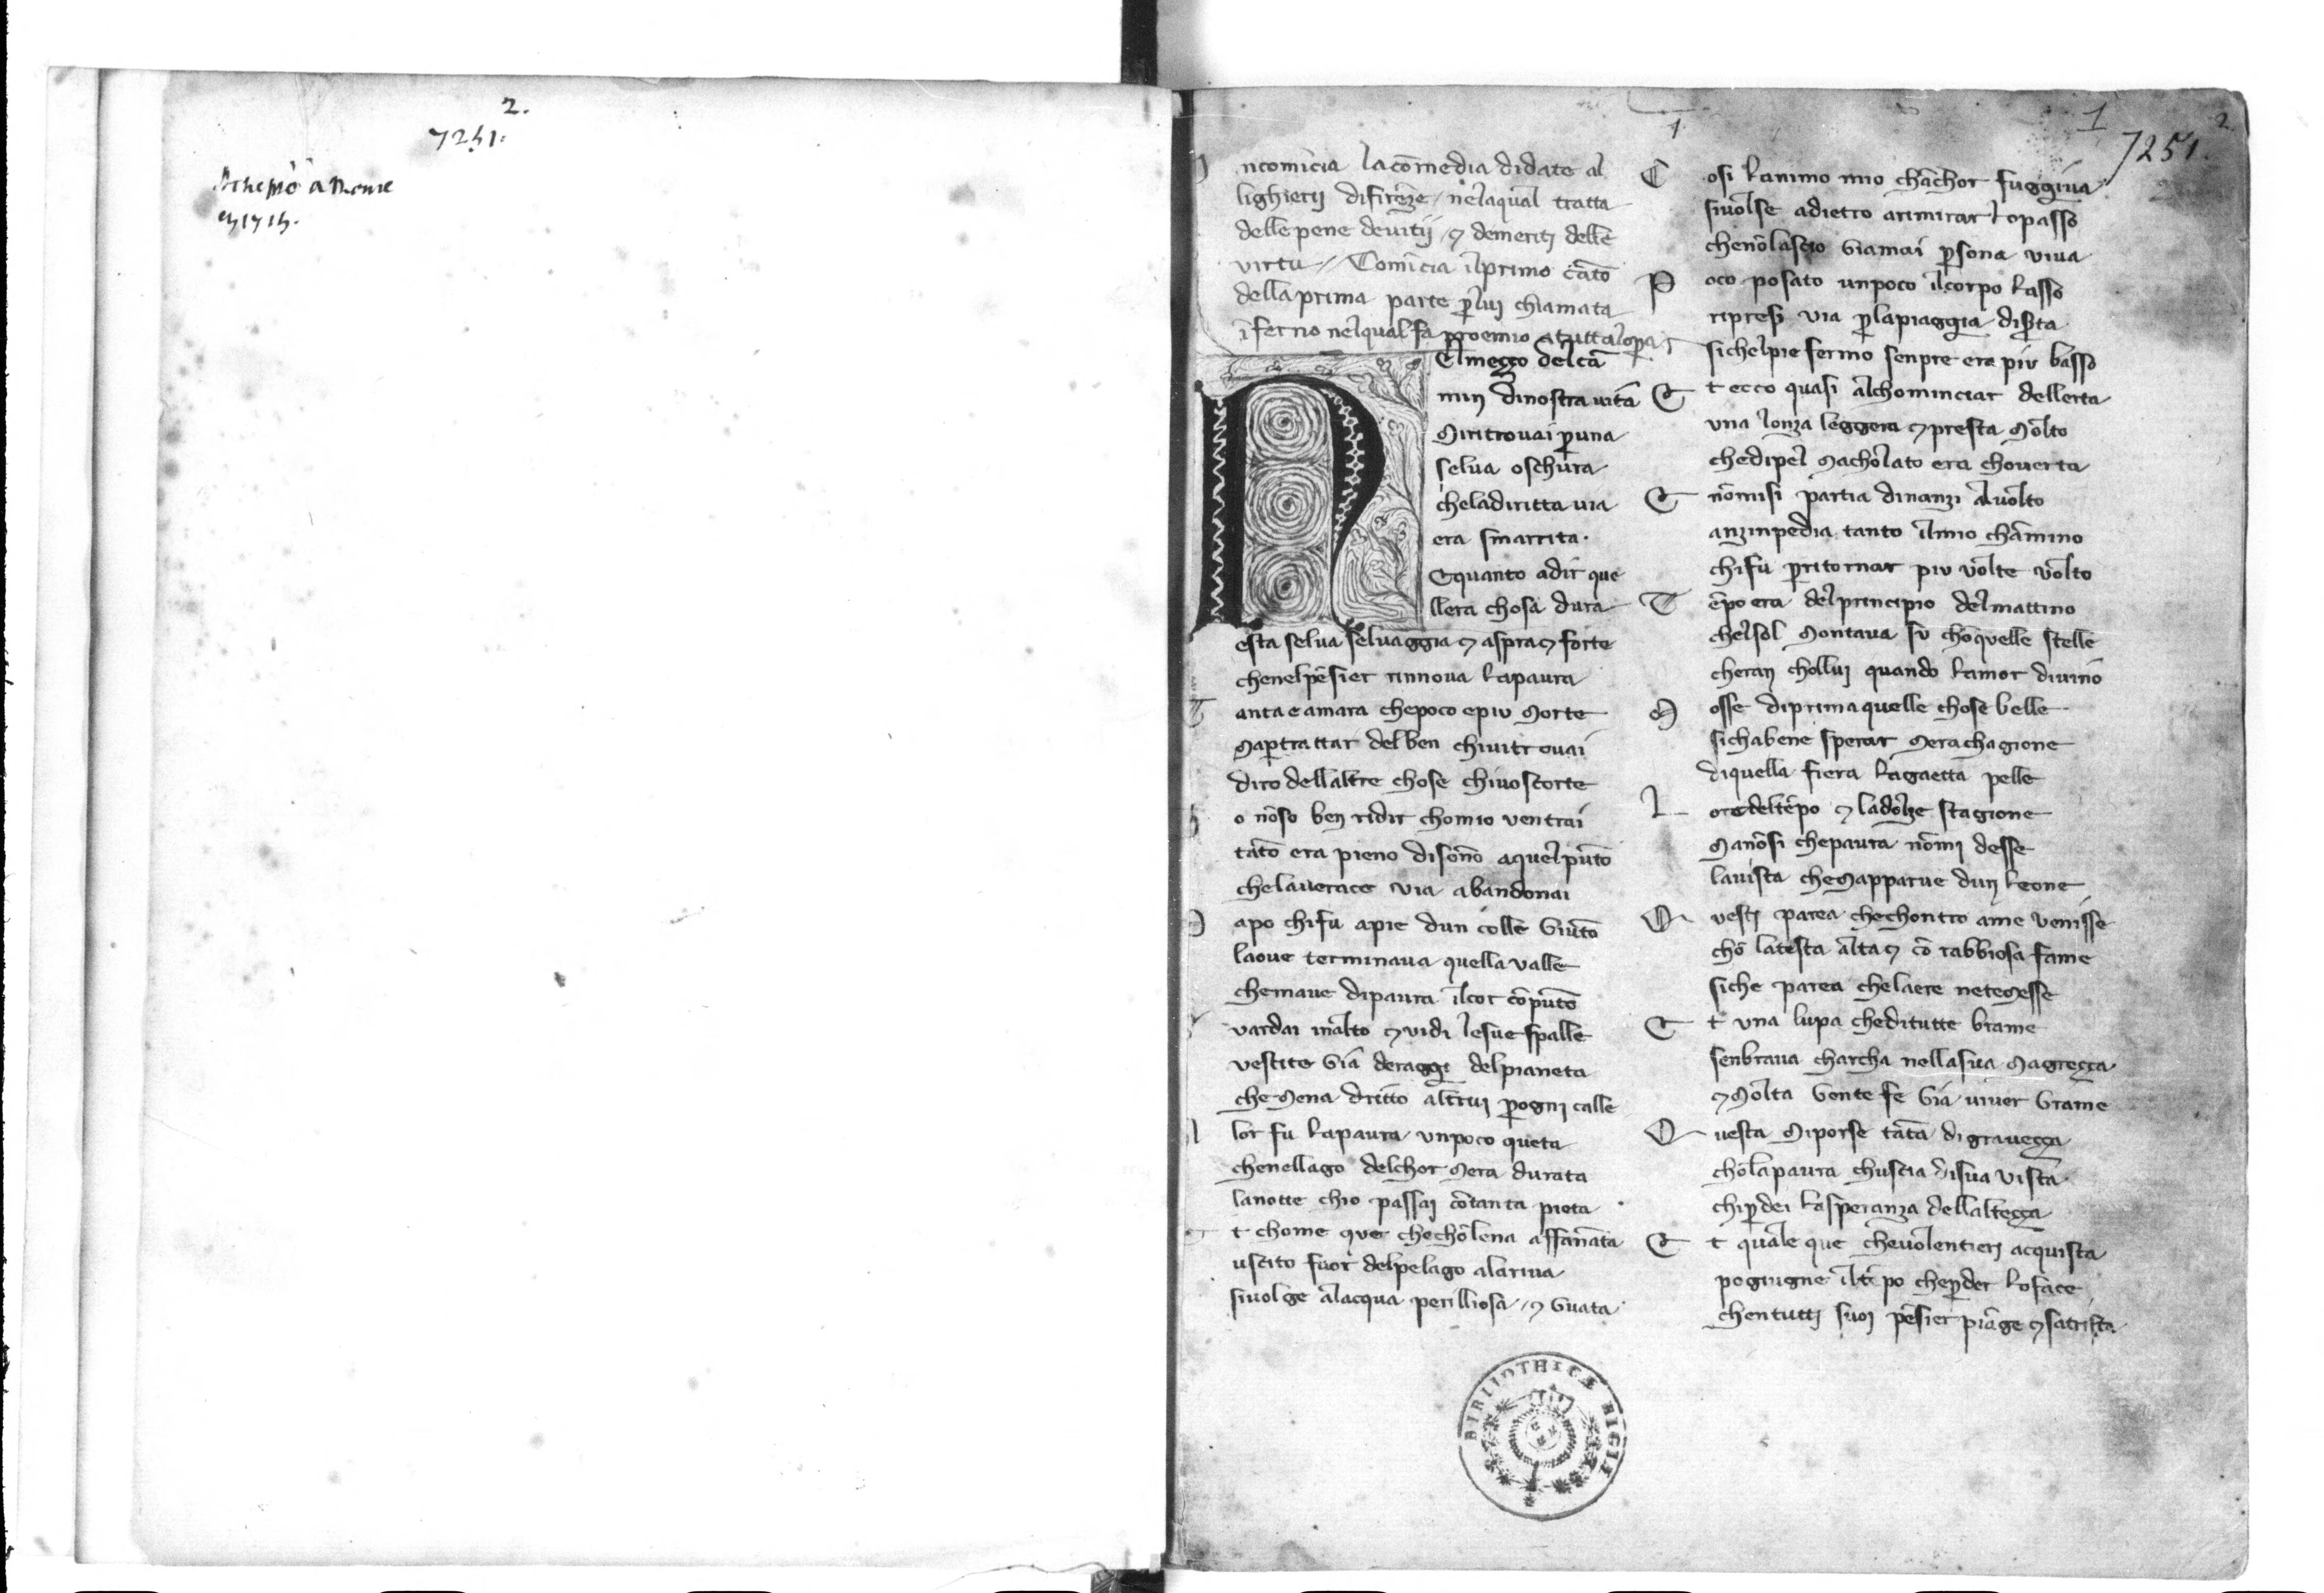 2.
7251.
Acheptè à Rome
en 1715.
1
1
2
7251.
Incomīcia la cōmedia di dāte al
lighierij di firēze / nela qual tratta
delle pene de uitij / ⁊ de meritj delle
virtu / Comīcia il primo cāto
della prima parte p̱ luj chiamata
īferno nel qual fa proemio a tutta lop̱a
NEl meçço del cā
min di nostra uita
Mi ritrouai p̱ una
selua oschura
che la diritta uia
era smarrita.
E quanto a dir que
llera chosa dura
esta selua seluaggia ⁊ aspra ⁊ forte
che nel pēsier rinnoua la paura
Tanta e amara che poco e piu morte
ma p̱ trattar del ben chiui trouai
diro dellaltre chose chiuo scorte
Io nō so ben ridir chomio ventrai
tāto era pieno di sōno a quel pūto
che la uerace via abandonai
Ma po chi fu a pie dun colle giūto
la oue terminaua quella valle
che mauea di paura il cor cōpūto
Guardai in alto ⁊ vidi le sue spalle
vestite gia de raggi del pianeta
che mena dritto altruj p̱ ognj calle
Allor fu la paura vn poco queta
che nel lago del chor mera durata
la notte chio passaj cō tanta pieta
Et chome quei che chō lena affannata
uscito fuor del pelago a la riua
si uolge alacqua perilliosa / ⁊ guata
Cosi lanimo mio chāchor fuggiua
si uolse a dietro a rimirar lo passo
che nō lascio giamai p̱sona viua
Poco posato un poco il corpo lasso
ripresi via p̱ la piaggia dis̱ta
si chel pie fermo senpre era piu basso
Et ecco quasi al chominciar dellerta
vna lonza leggera ⁊ presta molto
che di pel macholato era chouerta
Et nō mi si partia dinanzi al uolto
anzi npedia tanto il mio chāmino
chi fu p̱ ritornar piu volte volto
Tēpo era del principio del mattino
chel sol montaua su chō quelle stelle
cheran chollui quando lamor diuino
Mosse di prima quelle chose belle
si cha bene sperar mera chagione
di quella fiera la gaetta pelle
Lora del tēpo ⁊ la dolze stagione
ma nō si che paura nō mj desse
la uista che mapparue dun leone
Questj parea che chontro a me venisse
chō la testa alta ⁊ cō rabbiosa fame
si che parea che laere ne temesse
Et una lupa che di tutte brame
senbraua charcha nella sua magreçça
⁊ molta gente fe gia uiuer grame
Questa mi porse tāta di graueçça
chō la paura chuscia di sua vista
chi p̱dei la speranza dellalteçça
Et quale que che uolentierj acquista
po giugne il tēpo che p̱der lo face
che n tuttj suoj pēsier piāge ⁊ satrista
BIBLIOTHECÆ REGIÆ